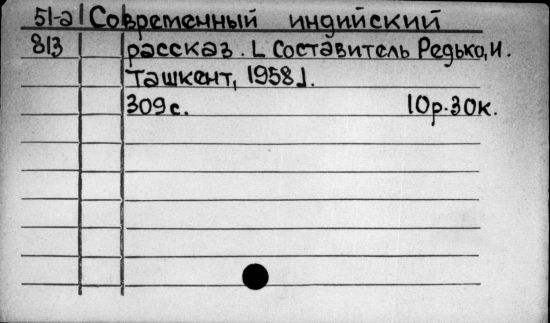 51-а Современный индийский
813 рассказ. [Составитель Редько, И.
Ташкент, 1958].
309 с. 10р.30к.